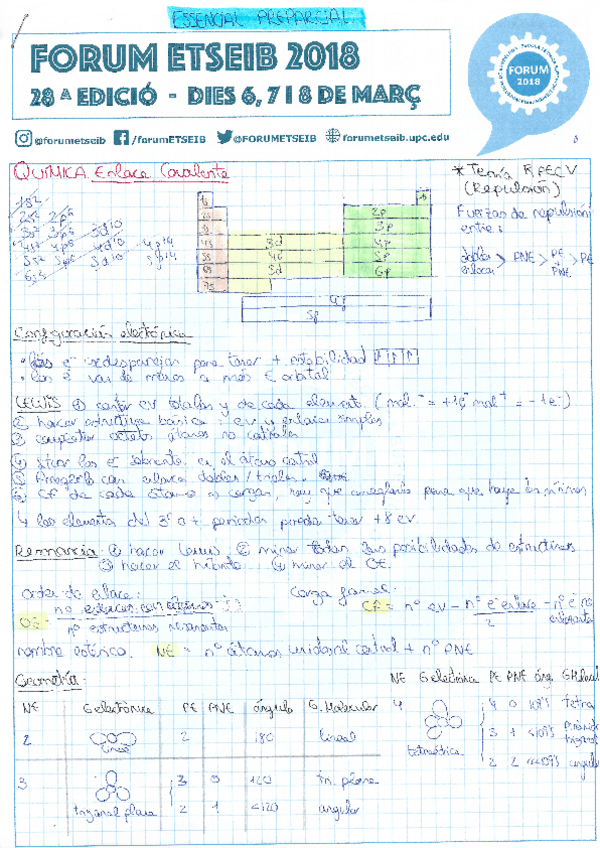 ESSENCIAL PREPARCIAL
FORUM ETSEIB 2018
28ª EDICIÓ - DIES 6, 7 I 8 DE MARÇ
FORUM
2018
@forumetseib /forumETSEIB @FORUMETSEIB forumetseib.upc.edu
QUÍMICA Enlace Covalente
* Teoría RPECV
(Repulsión)
Fuerzas de repulsión
entre:
dobles
enlaces > PNE > PE
PNE > PE
1s²
2s² 2p⁶
3s² 3p⁶ 3d¹⁰
4s² 4p⁶ 4d¹⁰ 4f¹⁴
5s² 5p⁶ 5d¹⁰ 5f¹⁴
6s²
1s
2s
3s
4s 3d 4p
5s 4d 5p
6s 5d 6p
7s
2p
3p
4f
5f
Configuración electrónica
para tener + estabilidad
van de menos a más E orbital
LEWIS ① contar eV totales y de cada elemento (mol.⁻ = +1e⁻ mol⁺ = -1e⁻)
② hacer estructura básica: eV y enlaces simples
③ completar octetos átomos no centrales
④ situar los e⁻ sobrantes en el átomo central
⑤ Arreglarlo con enlaces dobles/triples
⑥ CF de cada átomo si cargas, hay que arreglarlo para que haya las mínimas
↳ los elementos del 3º o + periodos puede tener +8 eV
Resonancia: ① hacer Lewis ② mirar todas sus posibilidades de estructuras
③ hacer el híbrido ④ mirar el OE
orden de enlace:
OE = nº enlaces con átomos
nº estructuras resonantes
Carga formal:
CF = nº eV - nº e⁻ enlace - nº e⁻ no
2 enlazantes
nombre estérico. NE = nº átomos unidos al central + nº PNE
Geometría:
NE G electrónica PE PNE ángulo G. Molecular
2 lineal 2 180 lineal
3 trigonal plana 3 0 120 tri. plana
2 1 <120 angular
NE G electrónica PE PNE áng. G. Molecul
4 tetraédrica 4 0 109'5 Tetra
3 1 <109'5 Pirámide
trigonal
2 2 <<109'5 angular